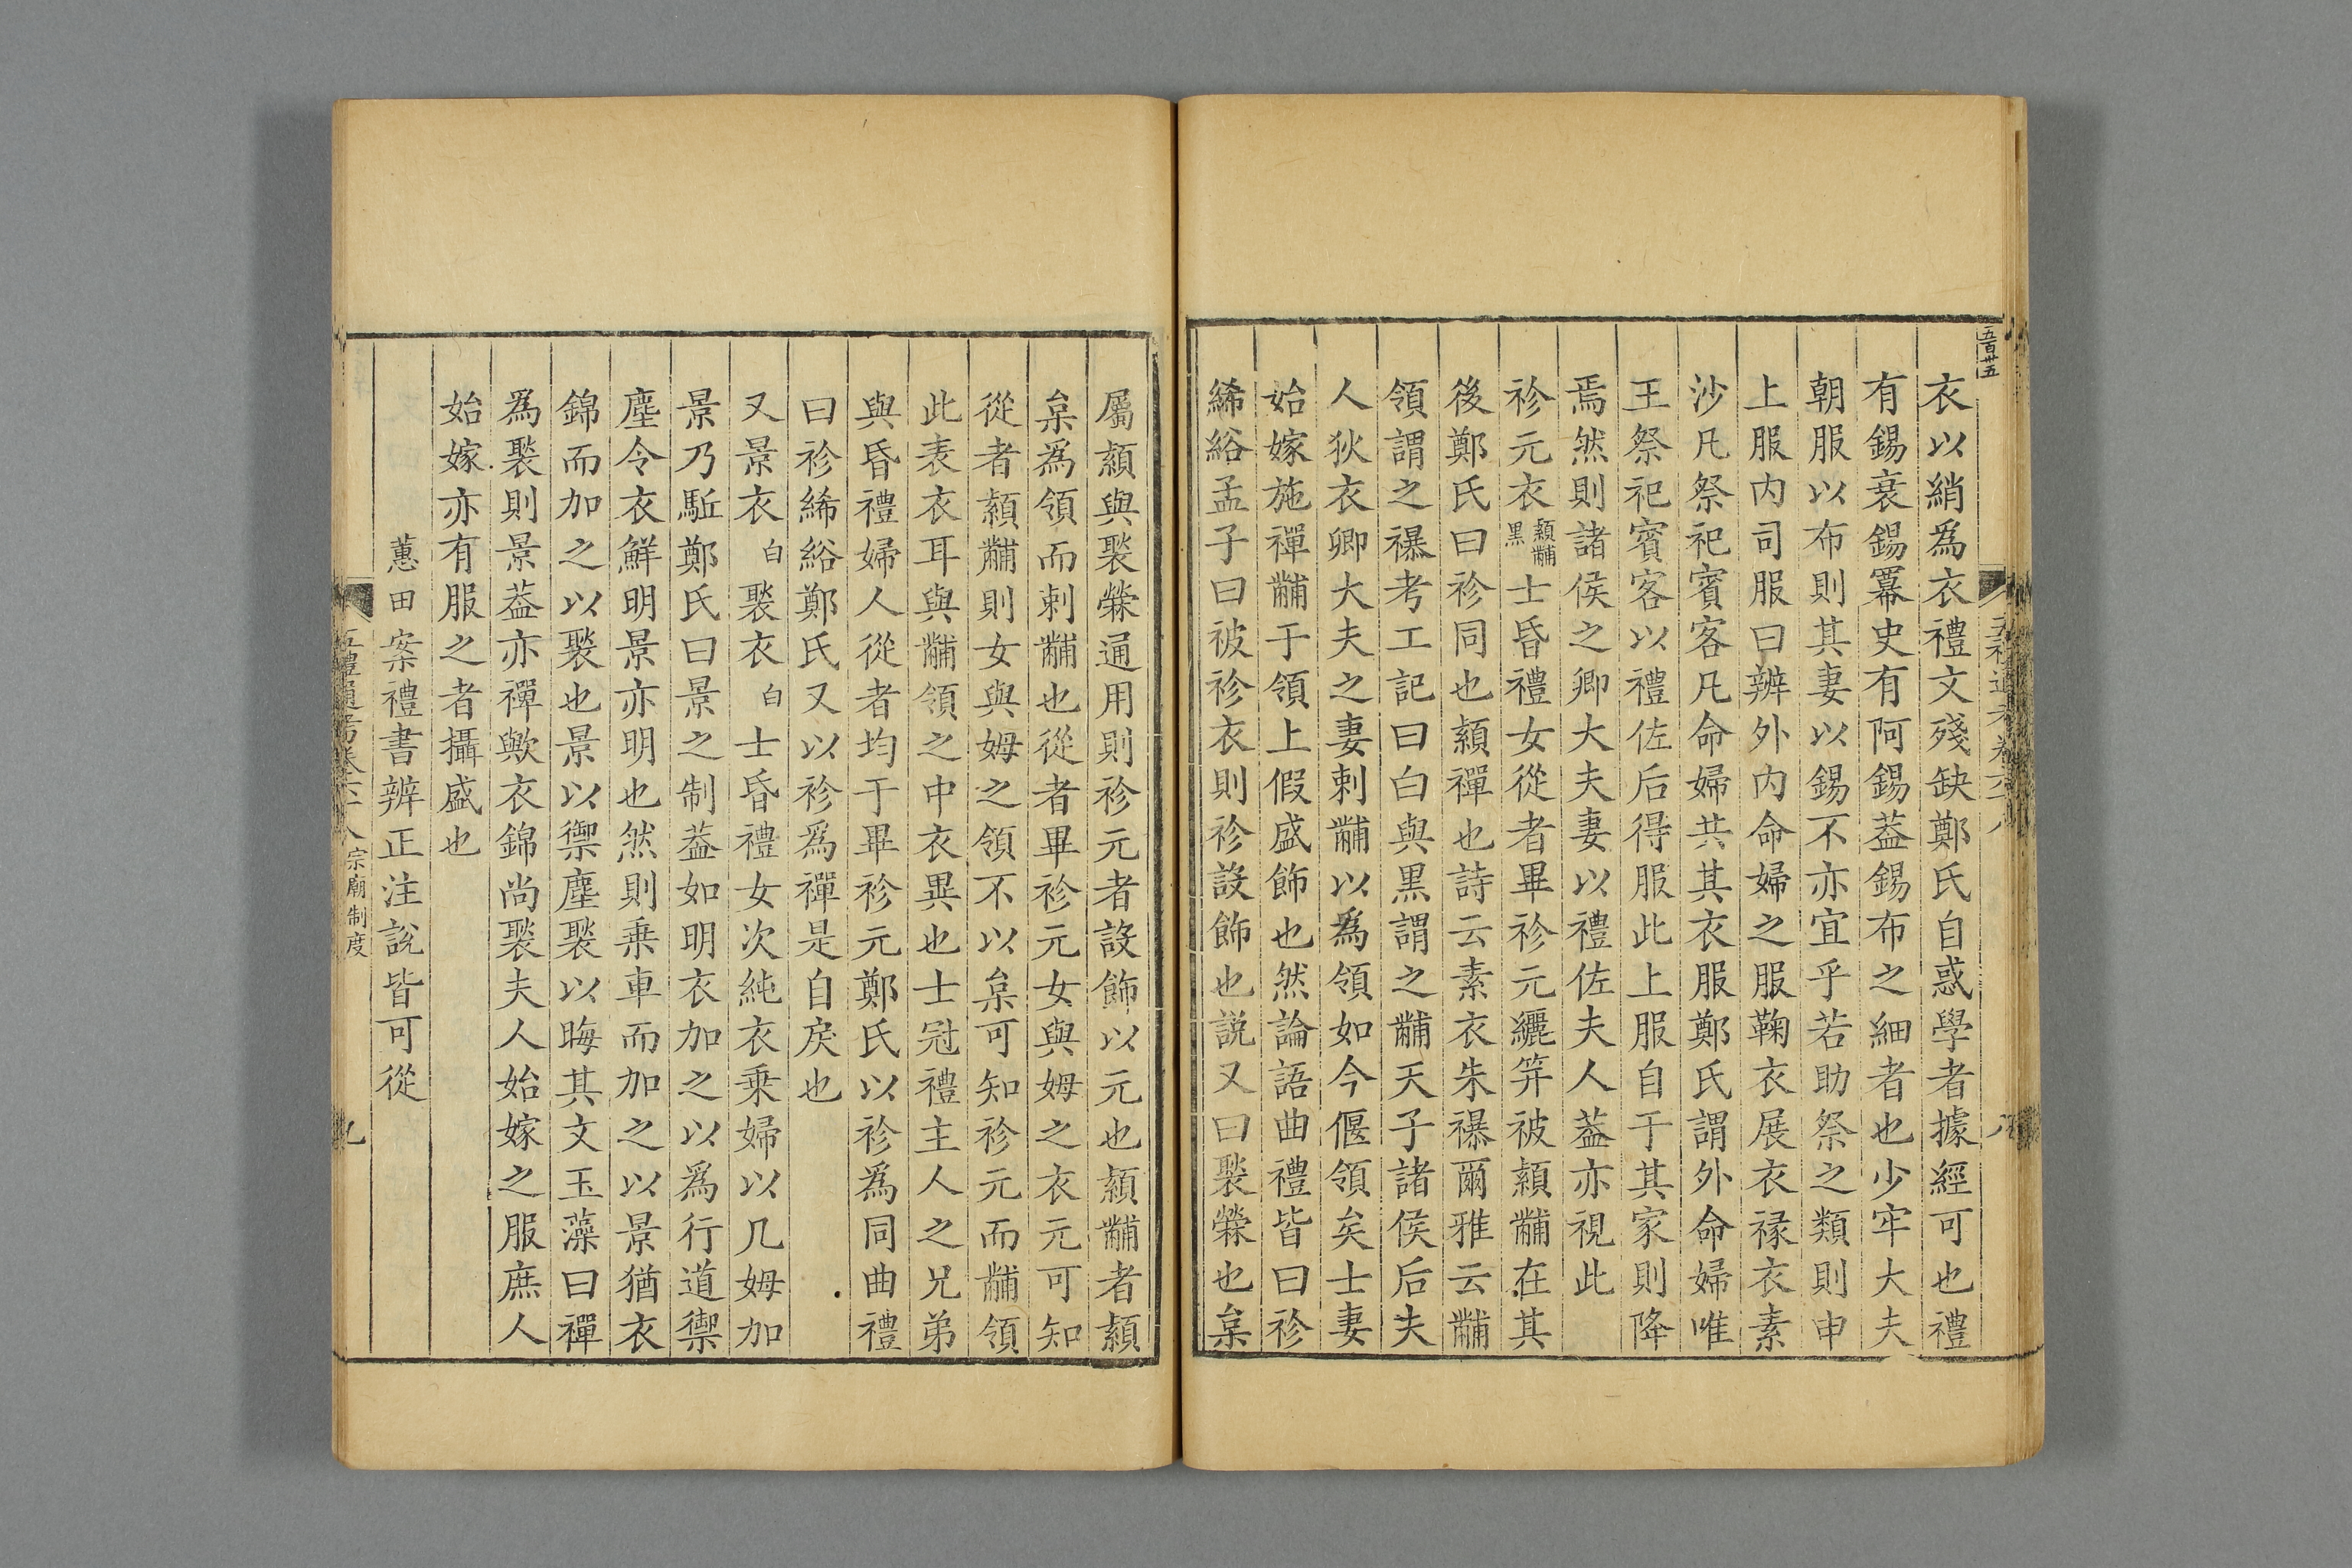 五百卅五
衣以綃爲衣禮文殘缺鄭氏自惑學者據經可也禮
有錫衰錫冪史有阿錫葢錫布之細者也少牢大夫
朝服以布則其妻以錫不亦宜乎若助祭之類則申
上服内司服曰辨外内命婦之服鞠衣展衣祿衣素
沙凡祭祀賓客凡命婦共其衣服鄭氏謂外命婦唯
王祭祀賓客以禮佐后得服此上服自于其家則降
焉然則諸侯之卿大夫妻以禮佐夫人葢亦視此
袗元衣熲黼黑士昏禮女從者畢袗元纚笄被熲黼在其
後鄭氏曰袗同也熲禪也詩云素衣朱襮爾雅云黼
領謂之襮考工記曰白與黑謂之黼天子諸侯后夫
人狄衣卿大夫之妻刺黼以爲領如今偃領矣士妻
始嫁施禪黼于領上假盛飾也然論語曲禮皆曰袗
絺綌孟子曰被袗衣則袗設飾也說又曰褧檾也枲
屬熲與褧檾通用則袗元者設飾以元也熲黼者熲
枲爲領而刺黼也從者畢袗元女與姆之衣元可知
從者熲黼則女與姆之領不以枲可知袗元而黼領
此表衣耳與黼領之中衣異也士冠禮主人之兄弟
與昏禮婦人從者均于畢袗元鄭氏以袗爲同曲禮
曰袗絺綌鄭氏又以袗爲禪是自戾也
又景衣白褧衣白士昏禮女次純衣乗婦以几姆加
景乃駈鄭氏曰景之制葢如明衣加之以爲行道禦
塵令衣鮮明景亦明也然則乗車而加之以景猶衣
錦而加之以褧也景以禦塵褧以晦其文玉藻曰禪
爲褧則景葢亦禪歟衣錦尚褧夫人始嫁之服庶人
始嫁亦有服之者攝盛也
蕙田案禮書辨正注說皆可從
五禮通考卷六十八 宗廟制度 九